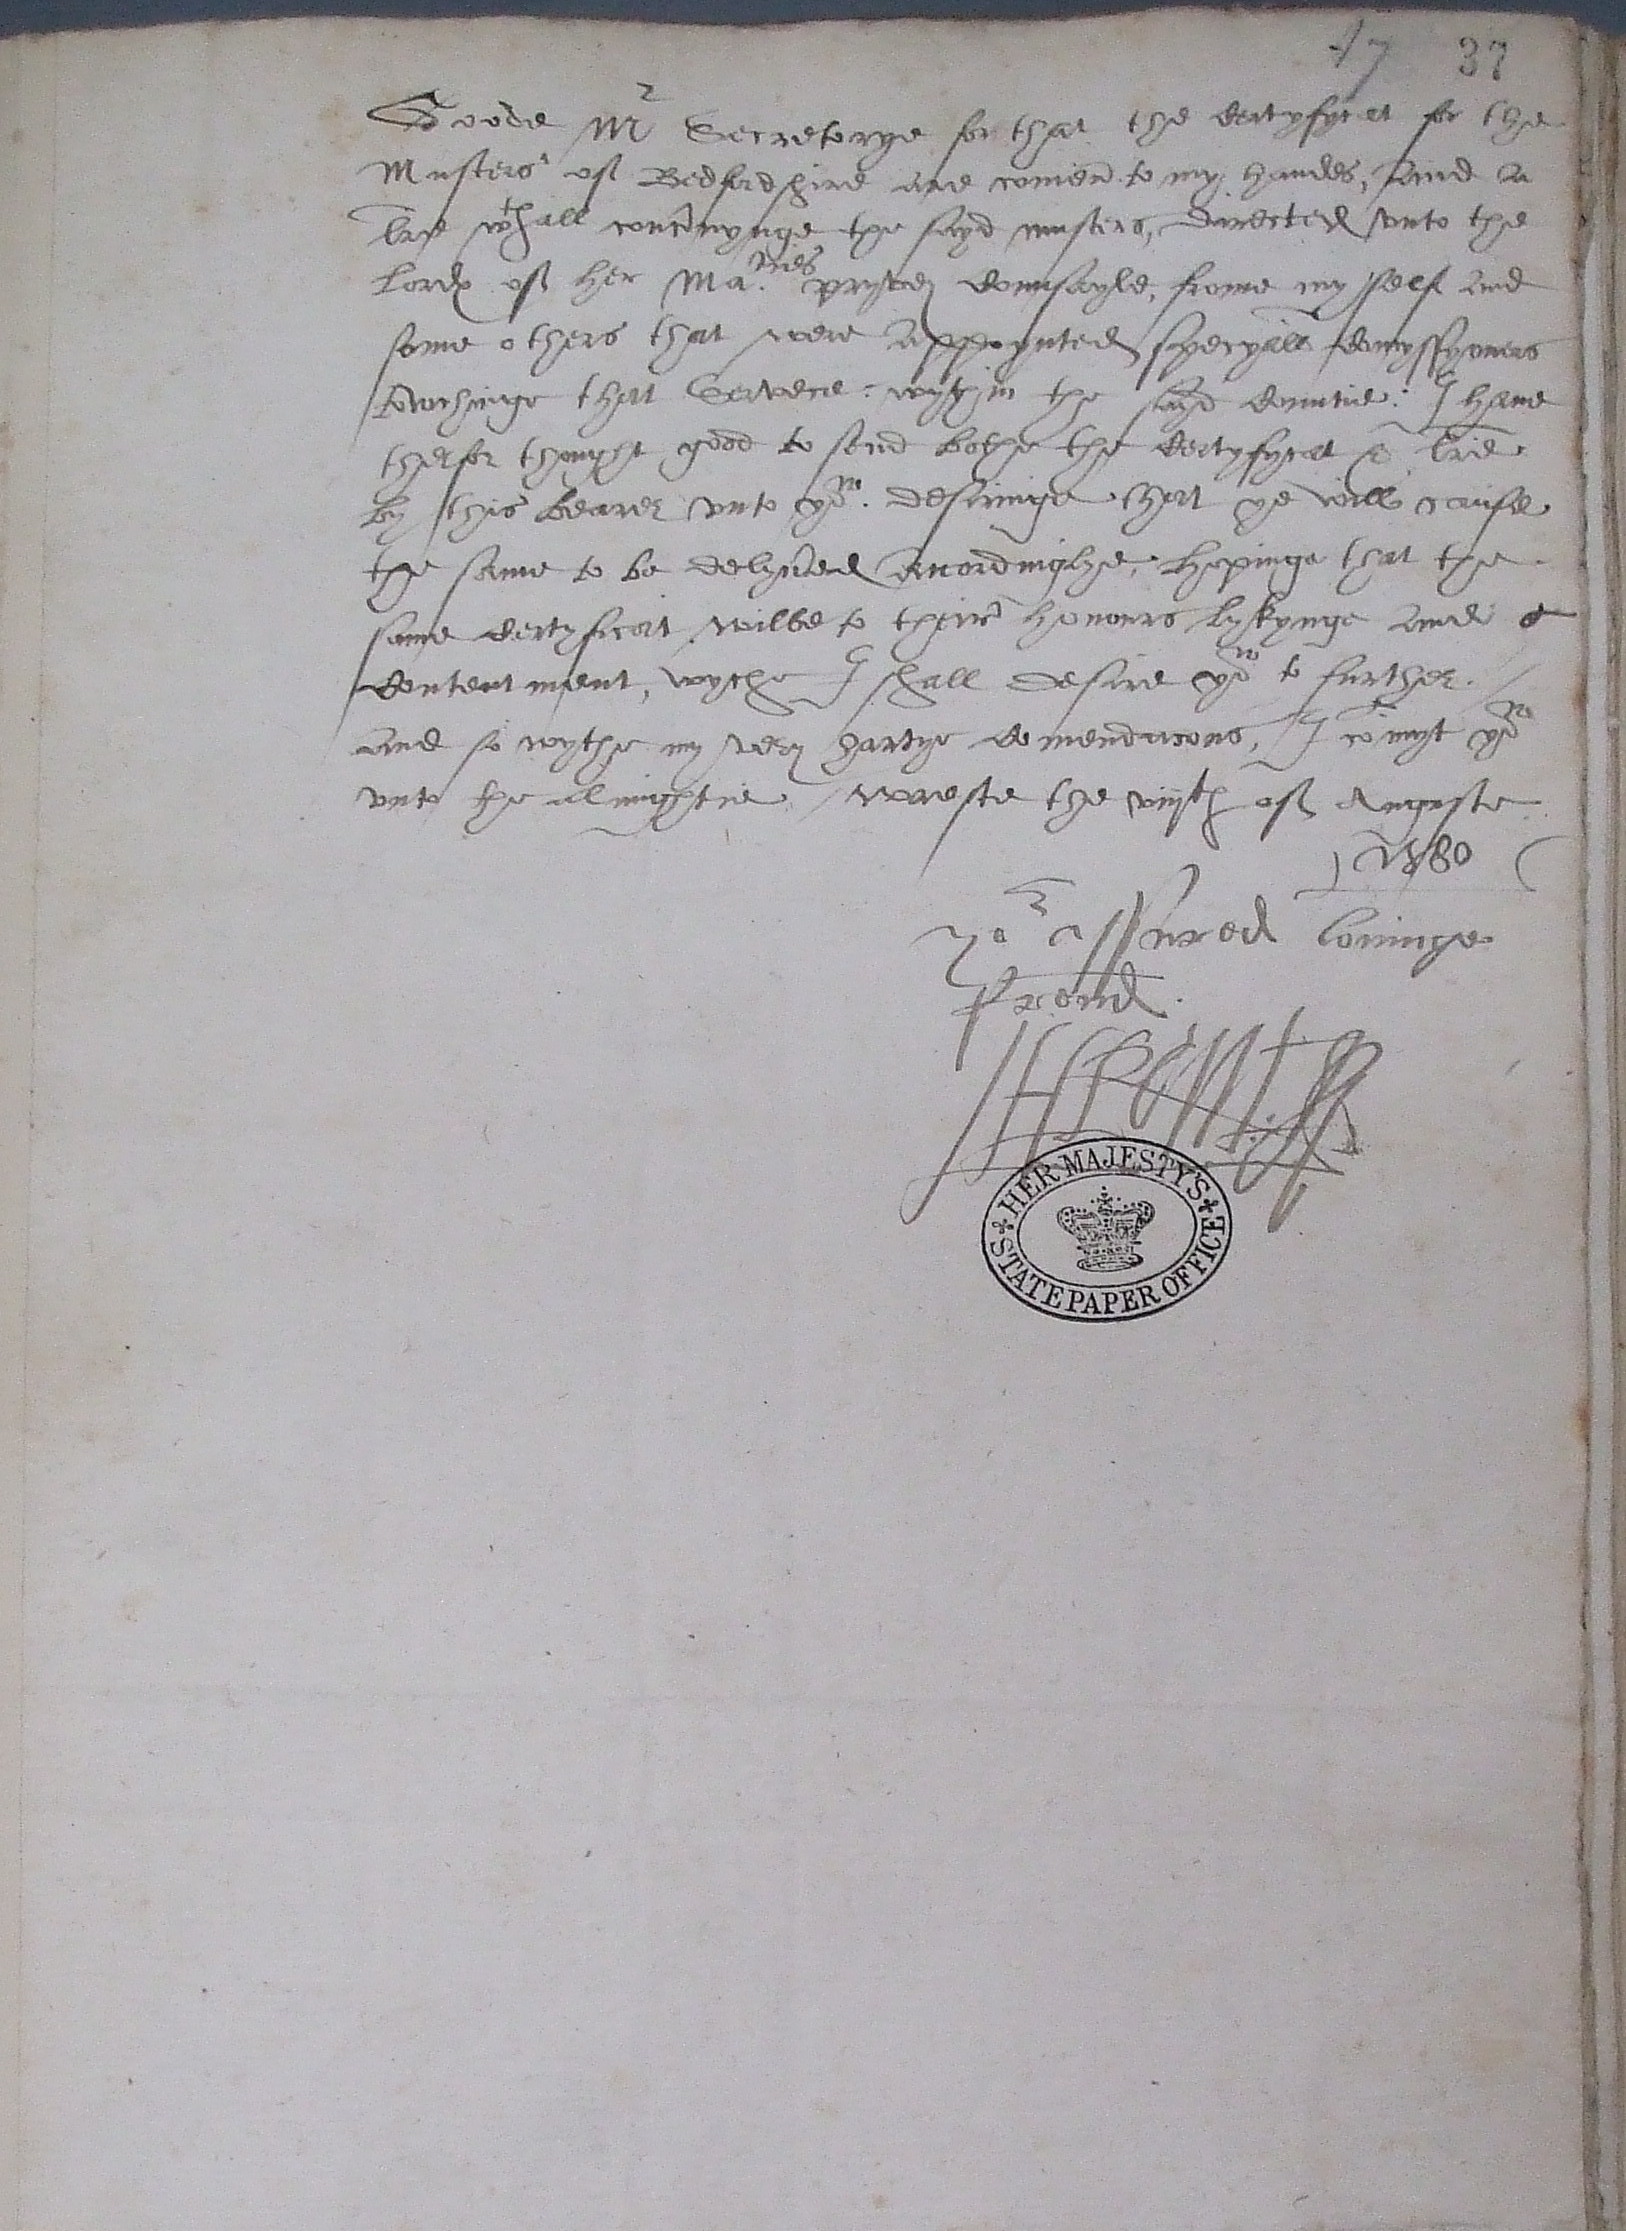 37
Goode Mr Secretorye for that the certyfycat for the
Musters of Bedfordshire are comen to my handes, And a
lre wthall concernynge the sayd musters, directed vnto the
Lords of her Ma.ties pryvey Counsayle, frome my self and
some others that were Appoynted specyall Comyssyoners
towchinge that Servece: wythin the sayd Countie: I haue
therfor thought good to send bothe the Certyfycat & lre
by this bearer vnto you. desiringe that ye will cause
the same to be delyuered Accordinglye, hopinge that the
same Certyficat wilbe to their honours lykynge and
Contentment, wyche I shall desire you to further.
And so wythe my very hartye Comendacons, I comyt you
vnto the almightie. Wreste the viijth of Auguste
1580
Yor assured lovinge
frend
H Kent
HER MAJESTY'S
STATE PAPER OFFICE